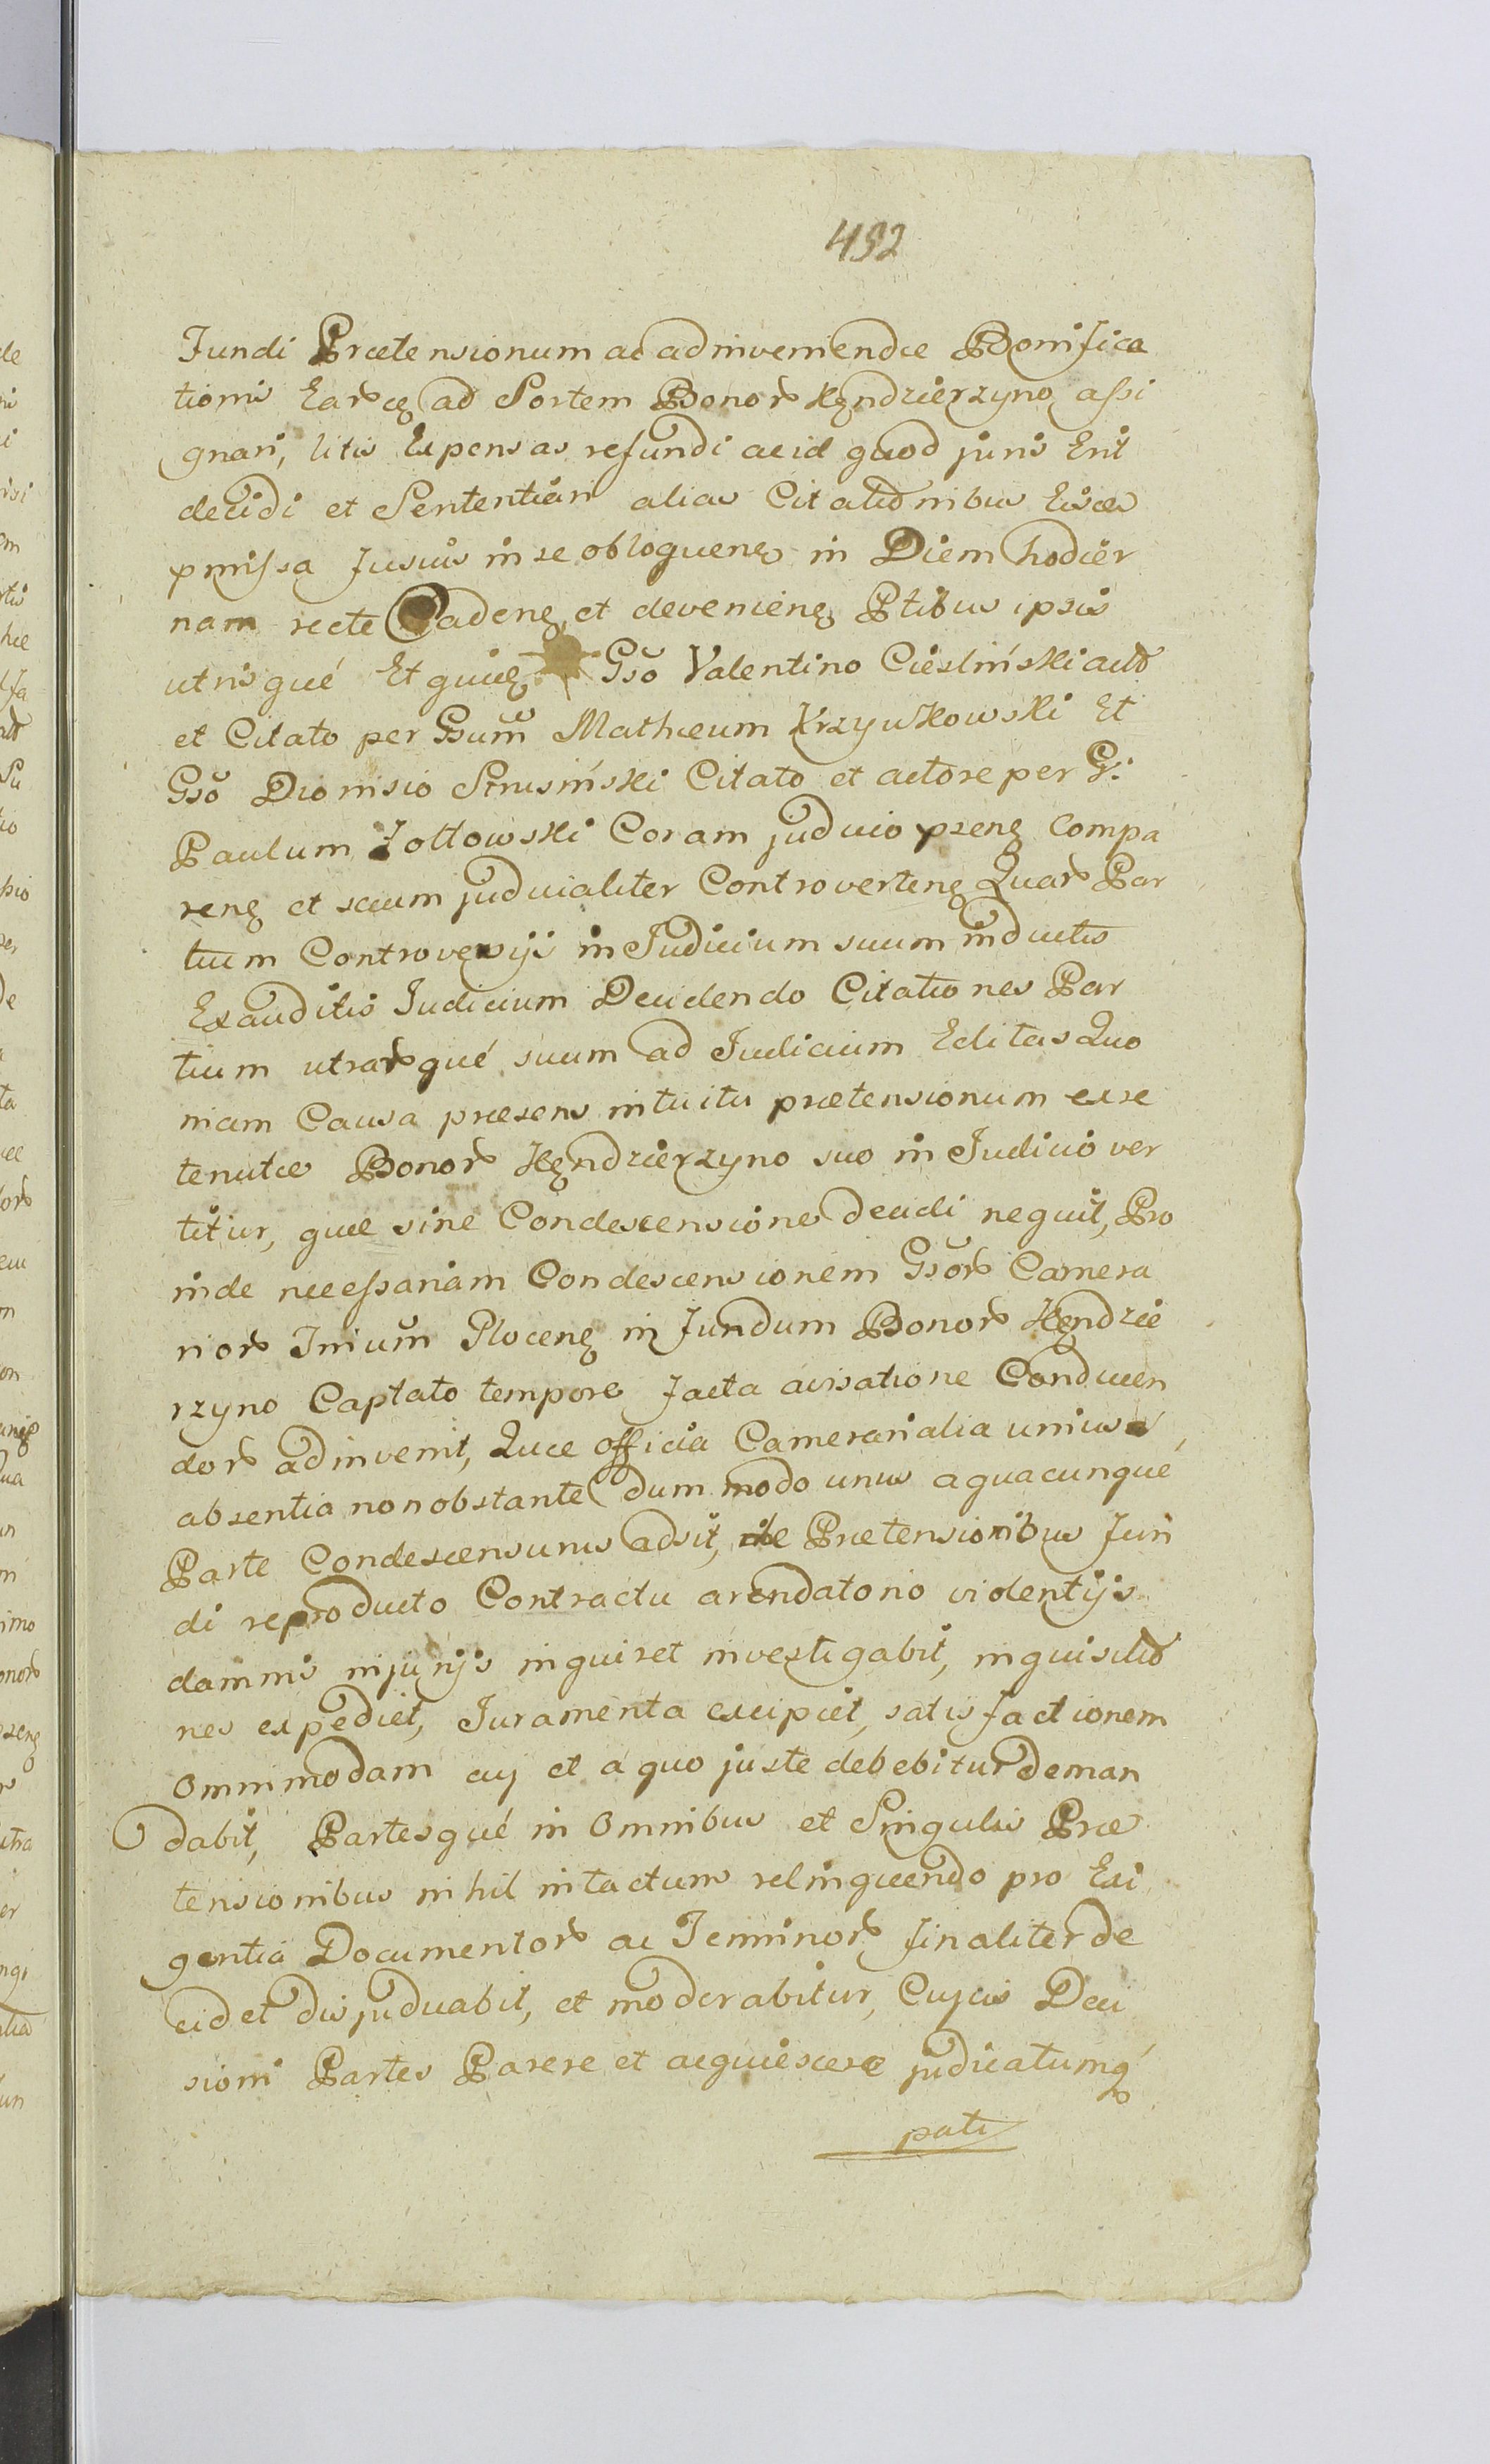 492
Fundi Prætensionum ac adinveniendæ Bonifica
tionis Earcę ad Sortem Bonor Kędzierzyno assi
gnari, litis Expensas refundi ac id quod juris Erit
decidi et Sententiari alias Citationibus Eisdē
pmissa fusius in se obloquenę in Diem hodier
nam recte Cadenę et devenienę Ptibus ipsis
utrisqué Et quidę Gso Valentino Cieslinski acto
et Citato per Gsum Mathæum Krzywkowski Et
Gso Dionisio Strusinski Citato et actore per G:
Paulum Zołtowski Coram judicio psenę Compa
renę et secum judicialiter Controvertenę Quar Par
tium Controversijs in Judicium suum inductis
Exauditis Judicium Decidendo Citationes Par
tium utrarqué suum ad Judicium Editas Quo
niam Causa præsens intuitu prætensionum exre
tenutæ Bonor Kędzierzyno suo in Judicio ver
titur, quæ sine Condescensione decidi nequit, Pro
inde necessariam Condescensionem Gsor Camera
rior Trium Plocenę in fundum Bonor Kędzie
rzyno Captato tempore facta avisatione Conducen
dor adinvenit, Quæ officia Camerarialia unius
absentia non obstante dum modo unus a quacunqué
Parte Condescensurus adsit, de Prætensionibus Fun
di reproducto Contractu arendatorio violentijs
damnis injurijs inquiret investigabit, inquisitio
nes expediet, Juramenta excipiet, satisfactionem
Omnimodam cuj et a quo juste debebitur deman
dabit, Partesqué in Omnibus et Singulis Præ
tensionibus nihil intactum relinquendo pro Exi
gentia Documentor ac Terminor finaliter de
cidet dijudicabit, et moderabitur, Cujus Deci
sioni Partes Parere et acquiescere judicatumq
pati